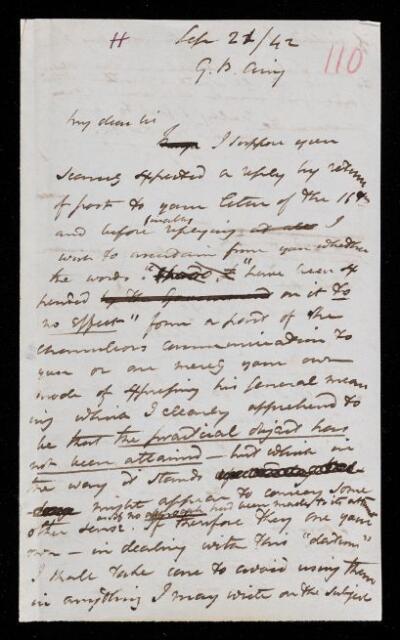 H Sep 21/42 110
G. B. Airy
My dear Sir
I suppose you
scarcely expected a reply by return
of post to your letter of the 16th
and before finally replying I
wish to ascertain from you whether
the words " have been ex
pended on it to
no effect" form a part of the
Chancellors communication to
you or are merely your own
mode of expressing his general mean
ing which I clearly apprehend to
be that the practical object has
not been attained – but which in
the way it stands
might appear to convey some
other sense. as if no approach had been made to its attainment
If therefore they are your
own – in dealing with this "dictum"
I shall take care to avoid using them
in anything I may write on the subject